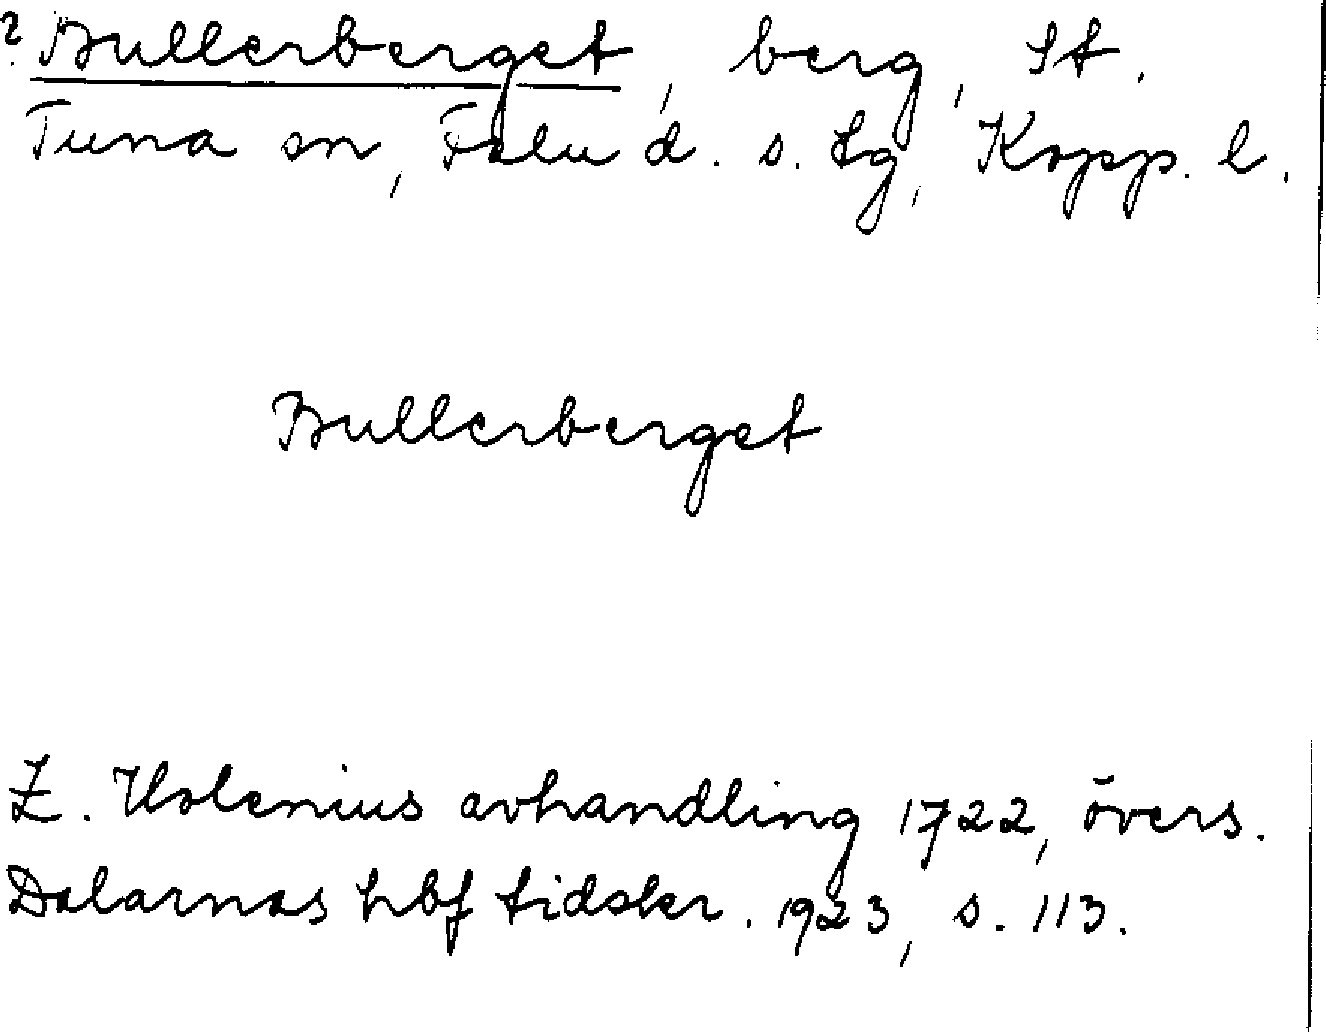 ? Bullerberget, berg, St.
Tuna sn, Falu d. s. lg, Kopp. l.
Bullerberget
Z. Holenius avhandling 1722, övers.
Dalarnas hbf tidskr. 1923, s. 113.